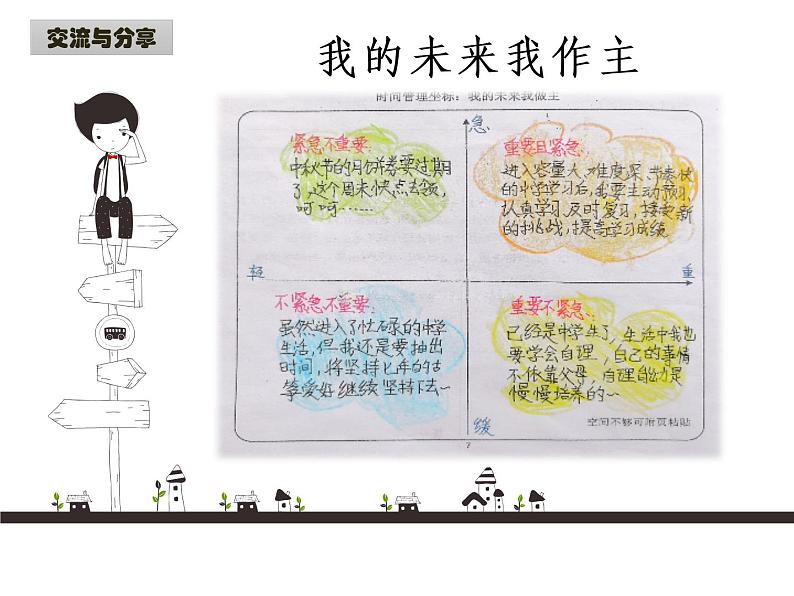 交流与分享
我的未来我作主
时间管理坐标：我的未来我做主
急
紧急不重要：
中秋节的月饼券要过期
了，这个周末快点去领，
呵呵……
重要且紧急：
进入容量大、难度深、节奏快
的中学学习后，我要主动预习，
认真学习，及时复习，接受新
的挑战，提高学习成绩。
轻
重
不紧急不重要：
虽然进入了忙碌的中学
生活，但我还是要抽出
时间，将坚持七年的古
筝爱好继续坚持下去~
重要不紧急：
已经是中学生了，生活中我也
要学会自理，自己的事情
不依靠父母，自理能力是
慢慢培养的~
缓
空间不够可附页粘贴
7